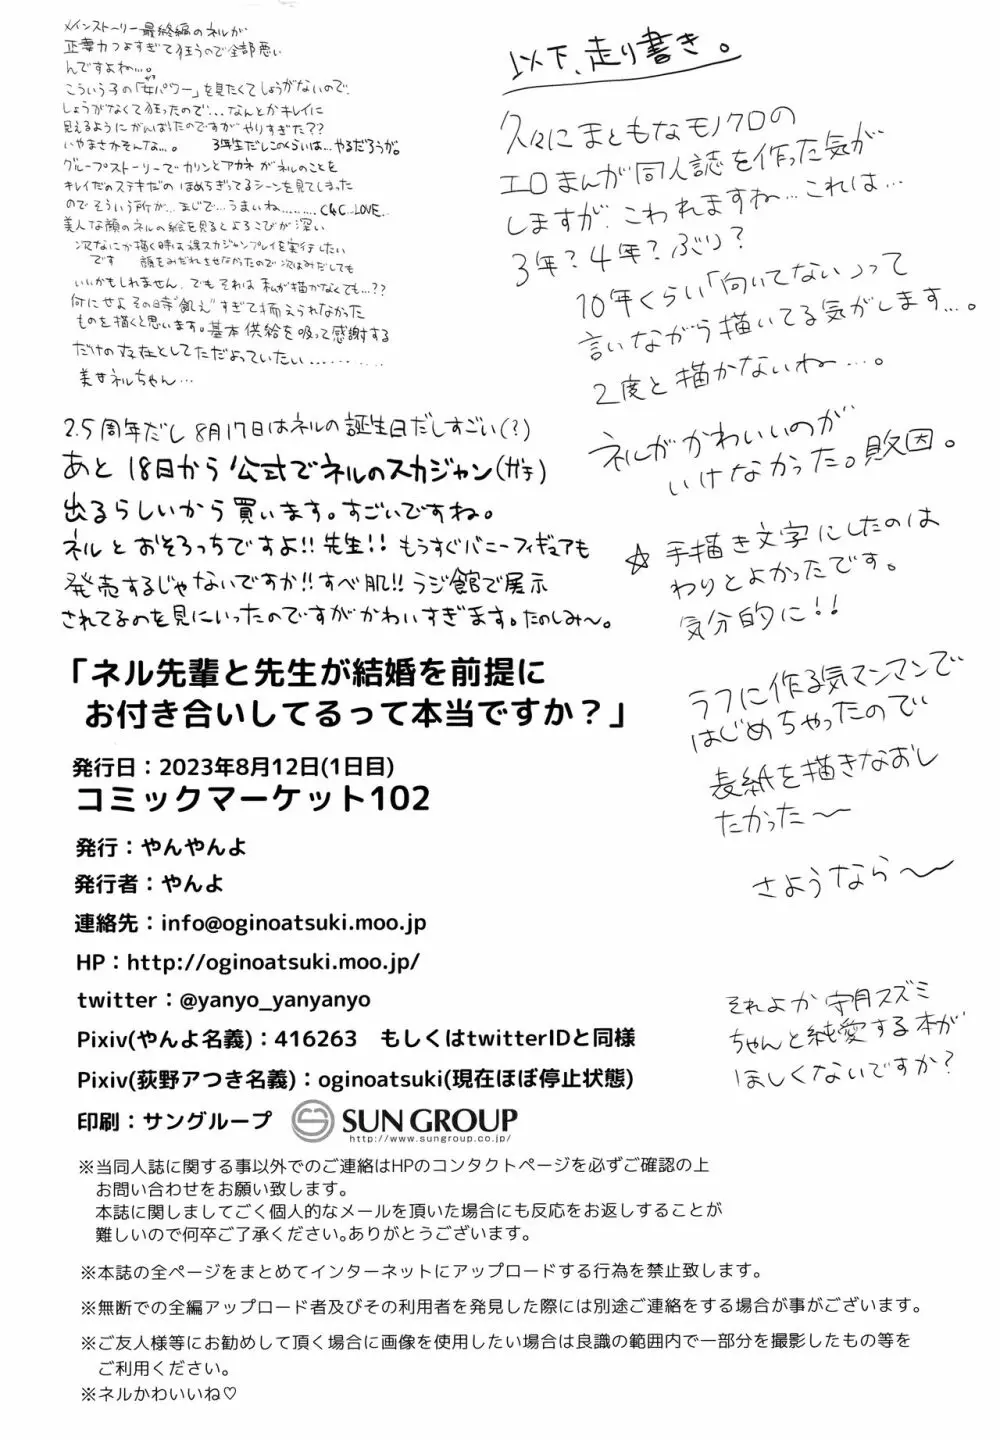 メインストーリー最終編のネルが
正妻力つよすぎて狂うので全部悪い
んですよね…。
こういう子の「女パワー」を見たくてしょうがないので、
しょうがなくて狂ったので…なんとかキレイに
見えるようにがんばったのですがやりすぎた??
いやまさかそんな…。 3年生だしこのくらいは…やるだろうが。
グループストーリーでカリンとアカネがネルのことを
キレイだのステキだの ほめちぎってるシーンを見てしまった
のでそういう所が…まじで…うまいね……… C&C…LOVE…
美人な顔のネルの絵を見るとよろこびが深い
次なにか描く時は裸スカジャンプレイを実行したい
です 顔をみだれさせなかったので次はみだしても
いいかもしれません、でもそれは私が描かなくても…??
何にせよその時"飢え"すぎて抑えられなかった
ものを描くと思います。基本供給を吸って感謝する
だけの存在としてただよっていたい…………
美女ネルちゃん…
2.5周年だし8月17日はネルの誕生日だしすごい(?)
あと18日から公式でネルのスカジャン(ガチ)
出るらしいから買います。すごいですね。
ネルとおそろっちですよ!!先生!! もうすぐバニーフィギュアも
発売するじゃないですか!!すべ肌!!ラジ館で展示
されてるのを見にいったのですがかわいすぎます。たのしみ〜。
「ネル先輩と先生が結婚を前提に
お付き合いしてるって本当ですか？」
発行日：2023年8月12日(1日目)
コミックマーケット102
発行：やんやんよ
発行者：やんよ
連絡先：info@oginoatsuki.moo.jp
HP：http://oginoatsuki.moo.jp/
twitter：@yanyo_yanyanyo
Pixiv(やんよ名義)：416263 もしくはtwitterIDと同様
Pixiv(荻野アつき名義)：oginoatsuki(現在ほぼ停止状態)
印刷：サングループ SUN GROUP
http://www.sungroup.co.jp/
以下、走り書き。
久々にまともなモノクロの
エロまんが同人誌を作った気が
しますが、こわれますね…これは…
3年？4年？ぶり？
10年くらい「向いてない」って
言いながら描いてる気がします…。
2度と描かないね…。
ネルがかわいいのが
いけなかった。敗因。
☆手描き文字にしたのは
わりとよかったです。
気分的に!!
ラフに作る気マンマンで
はじめちゃったので
表紙を描きなおし
たかった〜
さようなら〜
それよか 守月スズミ
ちゃんと純愛する本が
ほしくないですか？
※当同人誌に関する事以外でのご連絡はHPのコンタクトページを必ずご確認の上
お問い合わせをお願い致します。
本誌に関しましてごく個人的なメールを頂いた場合にも反応をお返しすることが
難しいので何卒ご了承ください。ありがとうございます。
※本誌の全ページをまとめてインターネットにアップロードする行為を禁止致します。
※無断での全編アップロード者及びその利用者を発見した際には別途ご連絡をする場合が事がございます。
※ご友人様等にお勧めして頂く場合に画像を使用したい場合は良識の範囲内で一部分を撮影したもの等を
ご利用ください。
※ネルかわいいね♡